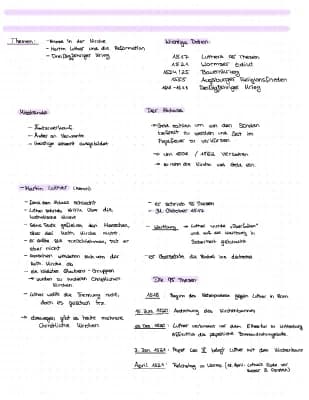 Themen:
- Krise in der Kirche
- Martin Luther und die Reformation
- Dreißigjähriger Krieg
Wichtige Daten:
1517 Luthers 95 Thesen
1521 Wormser Edikt
1524/25 Bauernkrieg
1555 Augsburger Religionsfrieden
1618-1648 Dreißigjähriger Krieg
Missstände
- Ämterverkauf
- Ämter an Verwandte
- Geistige schlecht ausgebildet
Der Ablass
→ Geld zahlen um von den Sünden
befreit zu werden und Zeit im
Fegefeuer zu verkürzen
→ so nahm die Kirche viel Geld ein.
- Martin Luther
- fand den Ablass schlecht
- Luther übte Kritik über die
katholische Kirche
- Seine Texte gefielen den Menschen,
aber der kath. Kirche nicht
- er sollte sie zurücknehmen, tat er
aber nicht
kath. Kirche ab
→ wurden zu anderen Christlichen
Kirchen
- Luther wollte die Trennung nicht,
doch es geschah trz.
→ deswegen gibt es heute mehrere
Christliche Kirchen
- er schrieb 95 Thesen
- 31. Oktober 1517
- Wartburg → Luther wurde
und auf der Wartburg in
Sicherheit gebracht
→ er übersetzte die Bibel ins deutsche
Die 95 Thesen
1518 Beginn des Ketzerprozess gegen Luther in Rom
15. Jun. 1520 Androhung des Kirchenbannes
10. Dez. 1520 Luther verbrennt vor dem Elstertor in Wittenberg
öffentlich die päpstliche Bannandrohungsbulle.
3. Jan. 1521 Papst Leo X belegt Luther mit dem Kirchenbann
April 1521 Reichstag in Worms